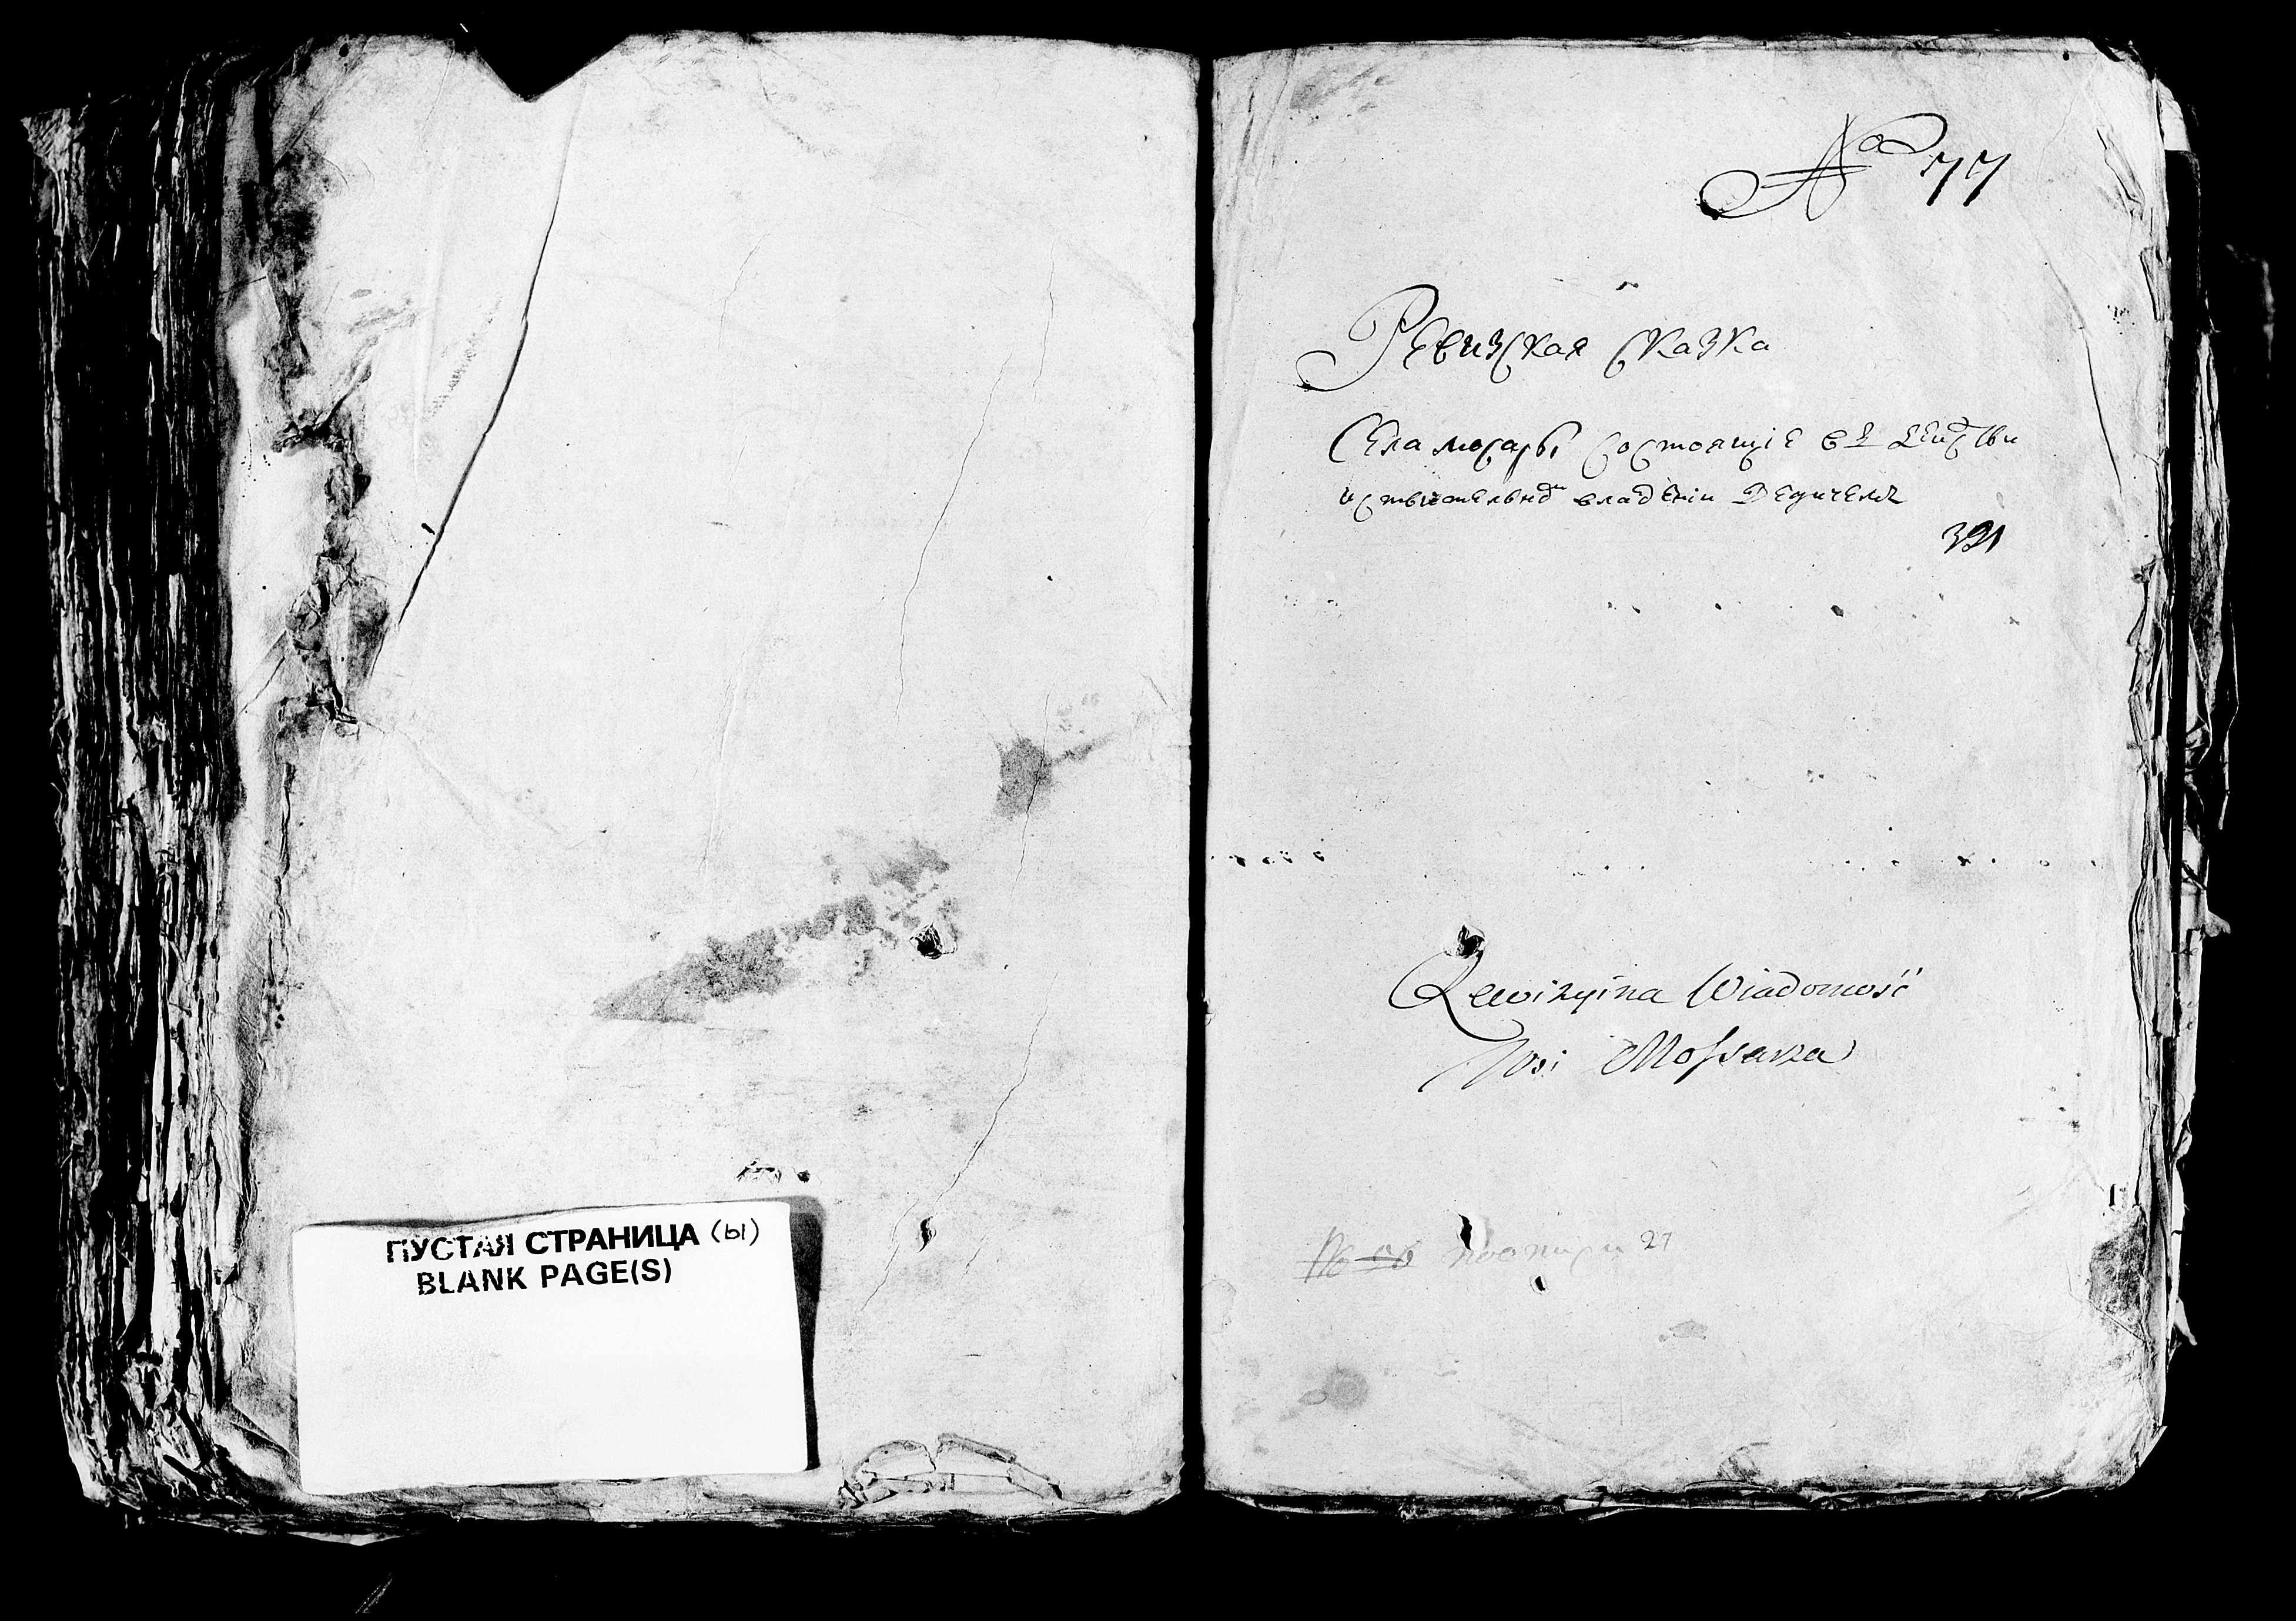 ПУСТАЯ СТРАНИЦА (ы)
BLANK PAGE(S)
№ 77
Ревизская сказка
Села мосары состоящие въ
владении Дедичемъ
391
Rewizyina Wiadomość
Wsi Mossarza
27